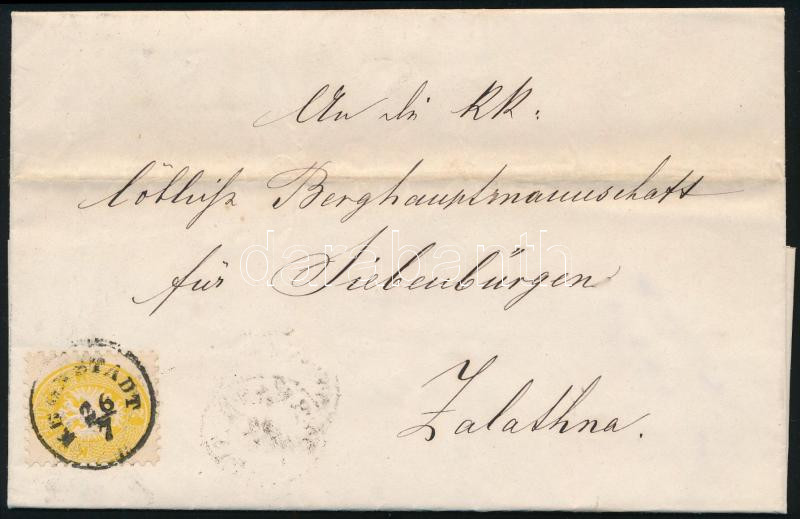 An die KK:
löbliche Berghauptmannschaft
für Siebenbürgen
Zalathna.
darabanth.com
KRONSTADT
26/7